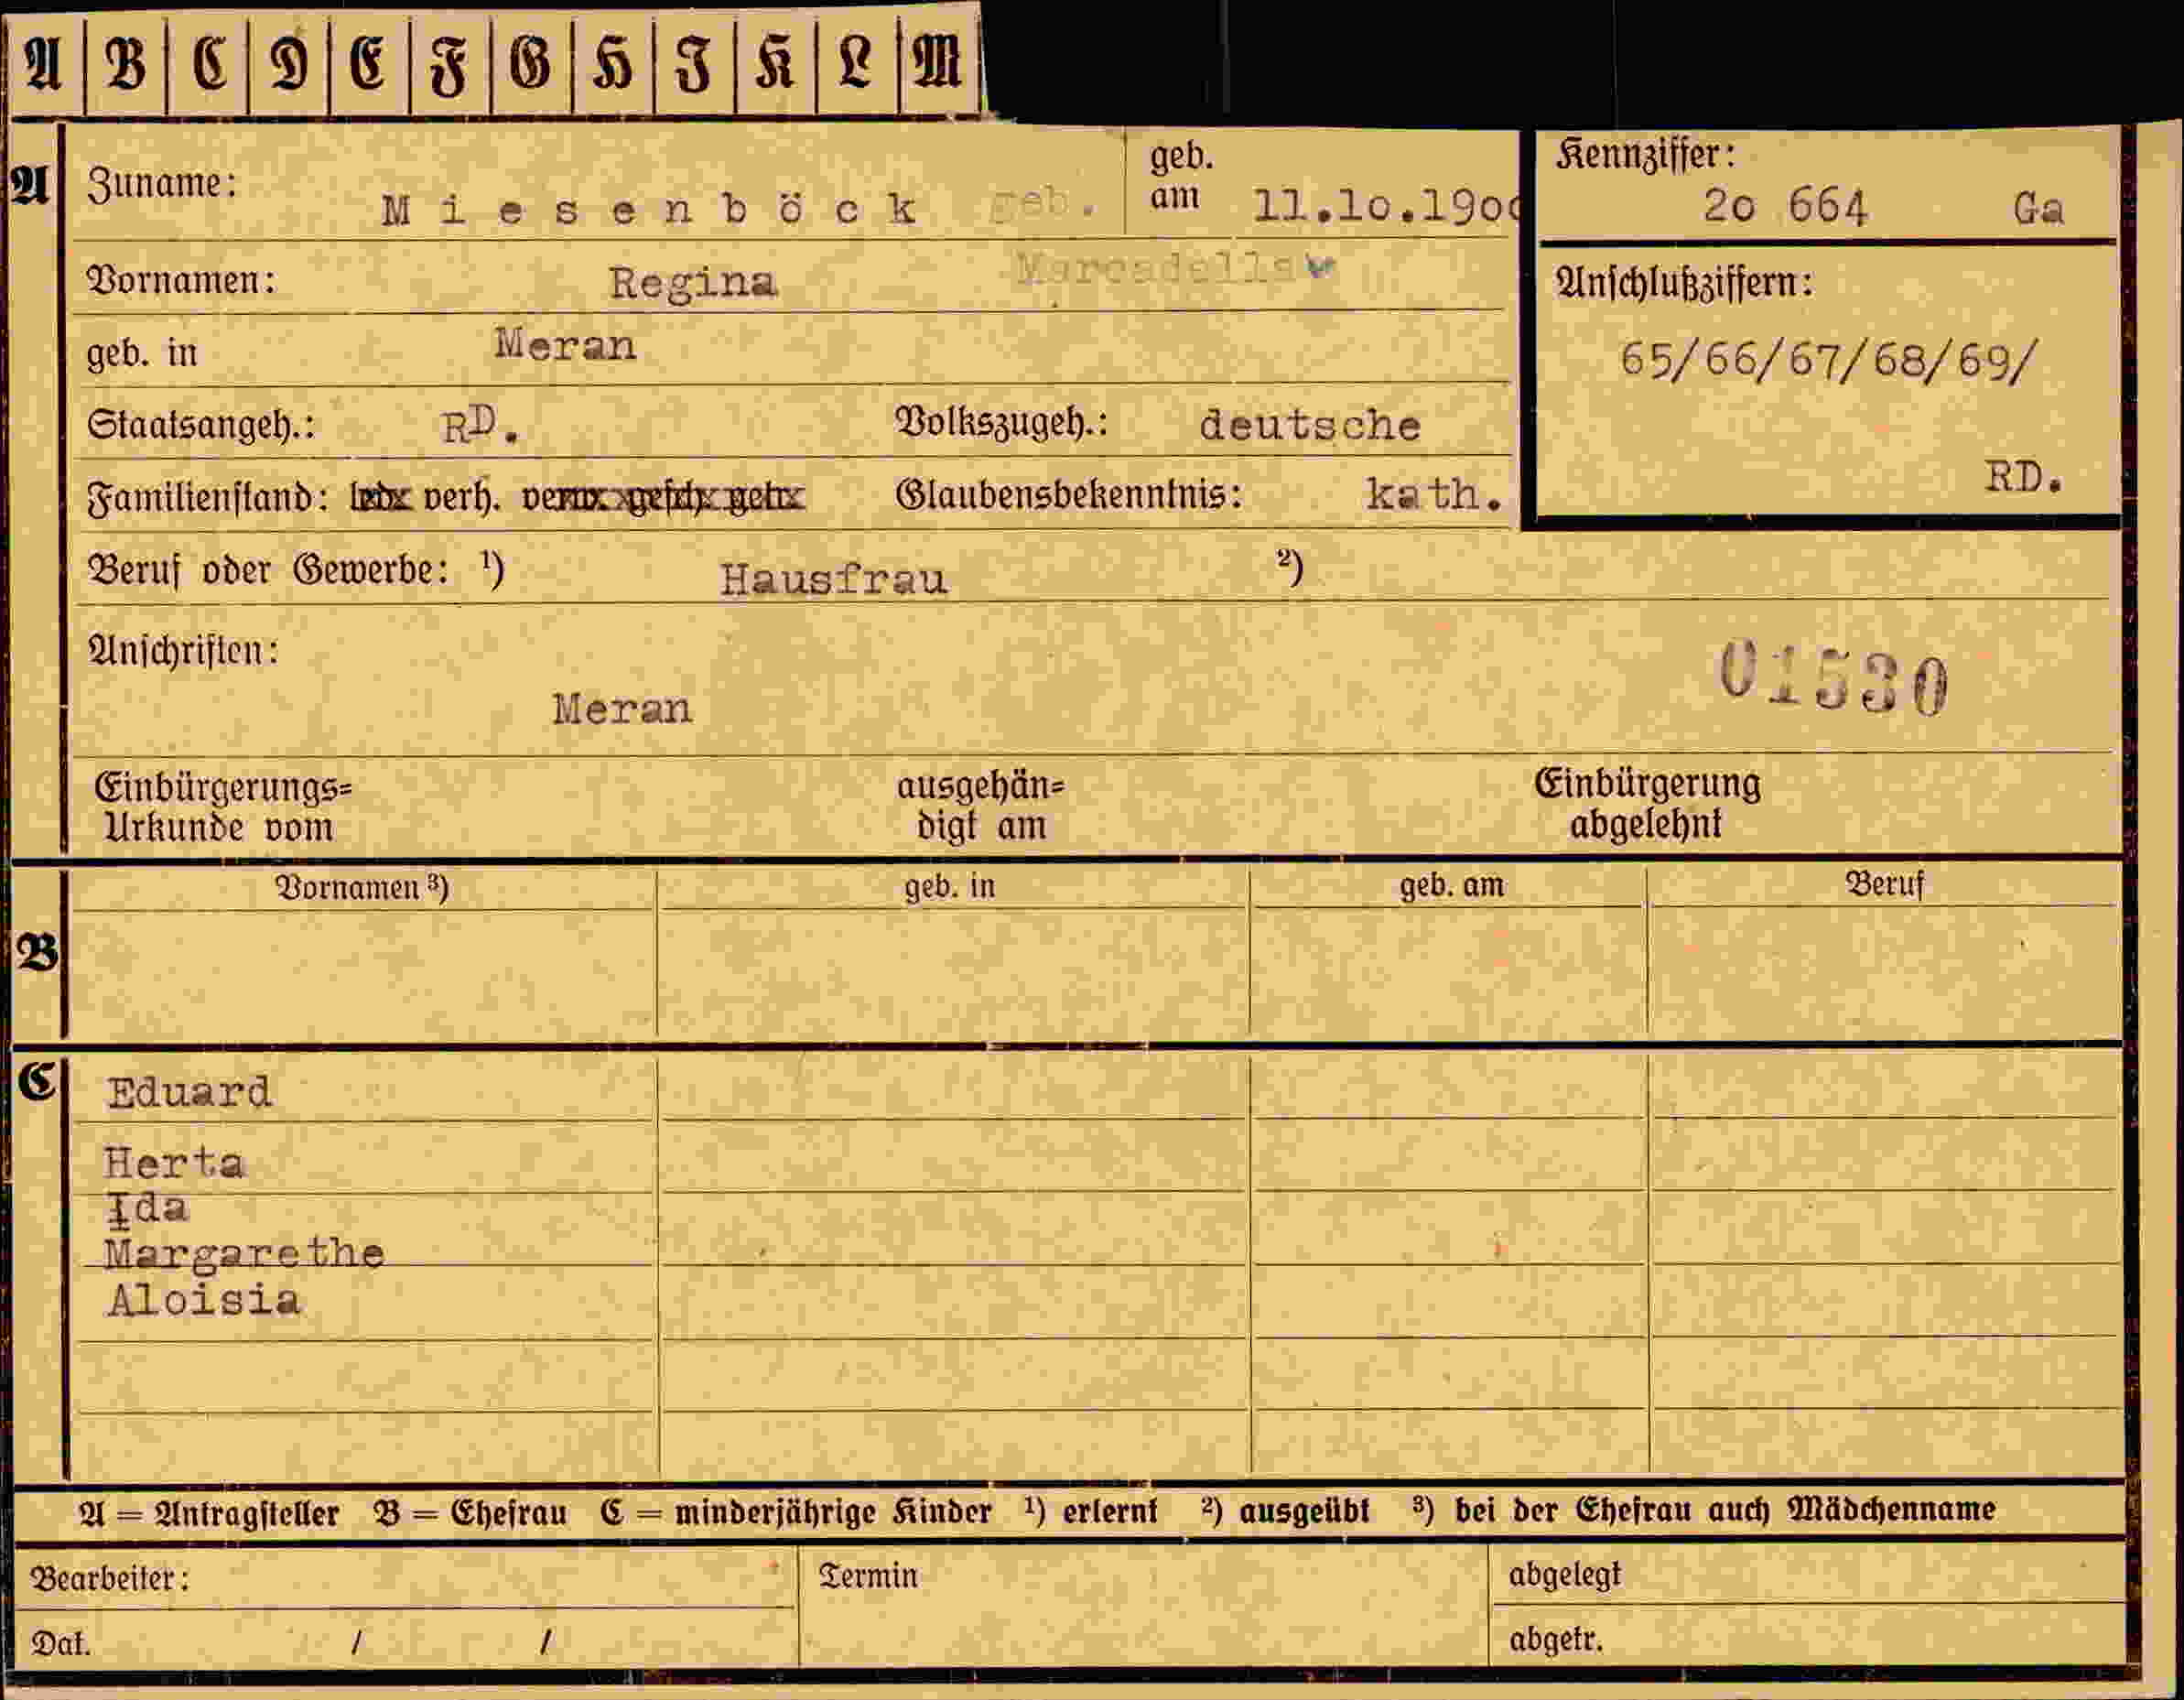 A B C D E F G H I K L M
A
Zuname: Miesenböck geb.
geb. am 11.10.190
Kennziffer: 20 664 Ga
Vornamen: Regina
Anschlußziffern:
geb. in Meran
65/66/67/68/69/
Staatsangeh.: RD. Volkszugeh.: deutsche
RD.
Familienstand: verh. Glaubensbekenntnis: kath.
Beruf oder Gewerbe: 1) Hausfrau 2)
Anschriften:
01530
Meran
Einbürgerungs= Urkunde vom
ausgehän= digt am
Einbürgerung abgelehnt
Vornamen 3) geb. in geb. am Beruf
B
C
Eduard
Herta
Ida
Margarethe
Aloisia
A = Antragsteller B = Ehefrau C = minderjährige Kinder 1) erlernt 2) ausgeübt 3) bei der Ehefrau auch Mädchenname
Bearbeiter: Termin abgelegt
Dat. / / abgetr.